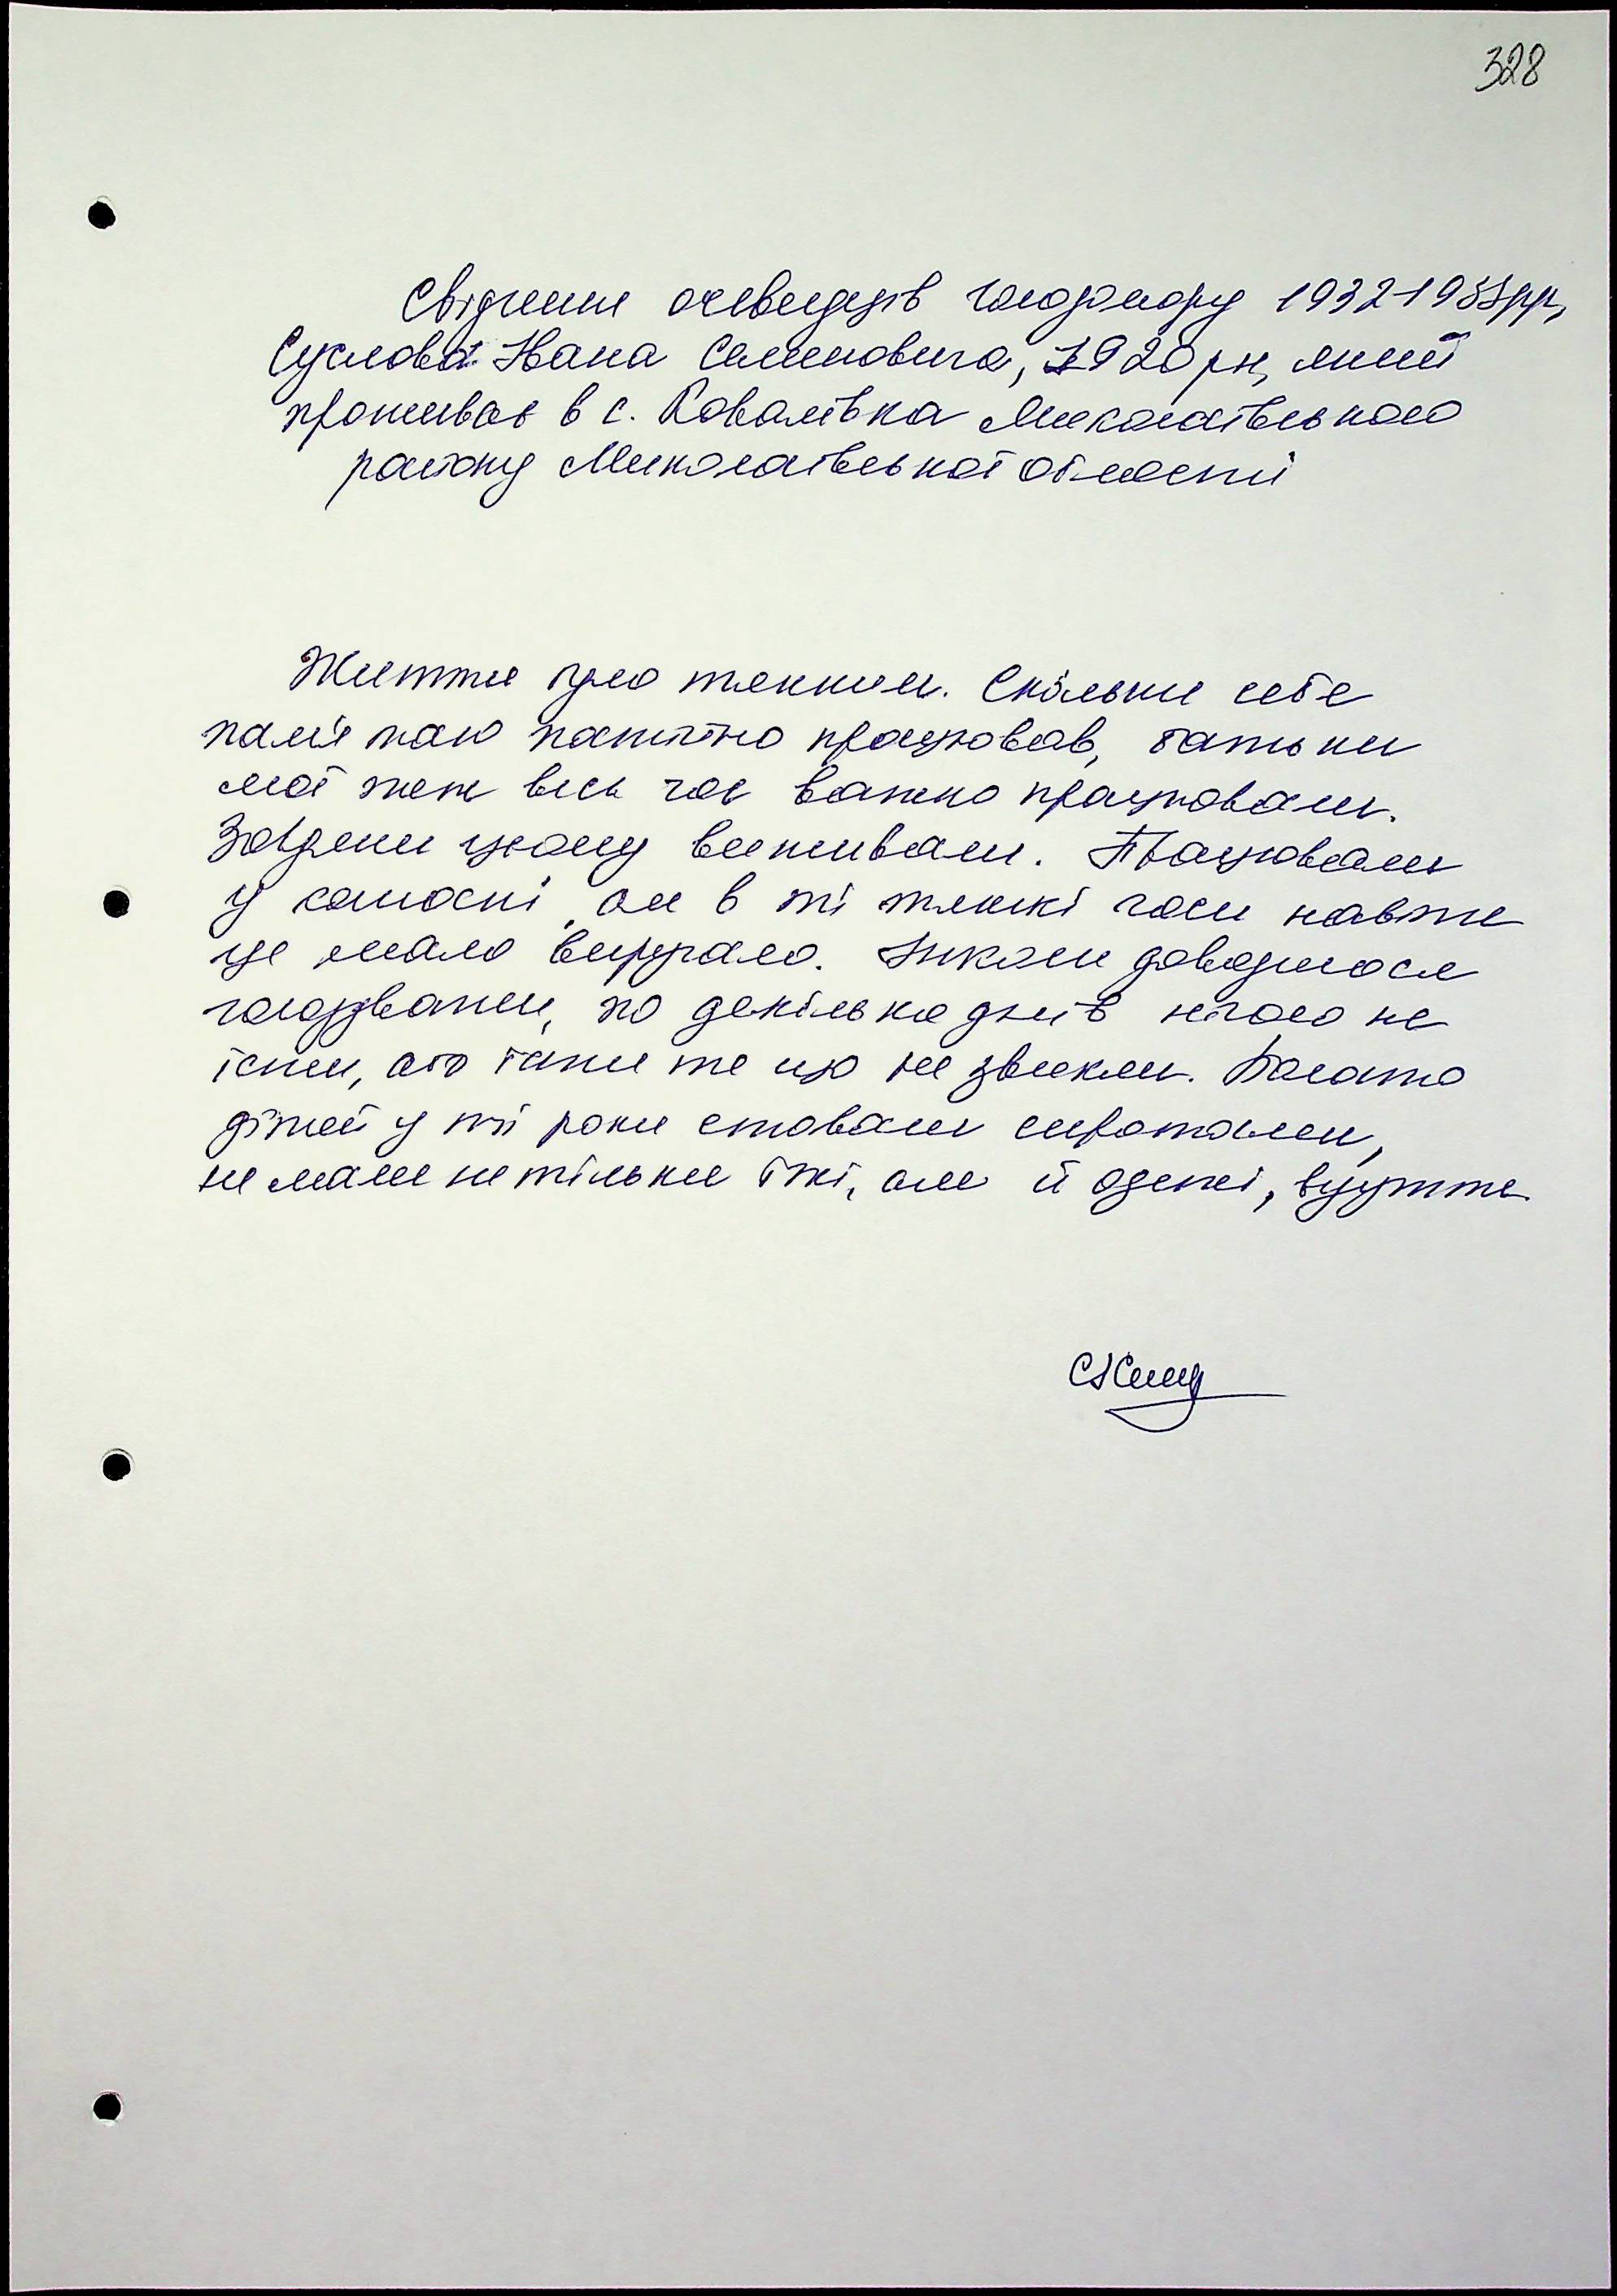 328
Свідчення очевидців голодомору 1932-1933рр,
Суслова Івана Семеновича, 1920 рн, який
проживає в с. Ковалівка Миколаївського
району Миколаївської області
Життя було тяжким. Скільки себе
пам'ятаю постійно працював, батьки
мої теж весь час важко працювали.
Завдяки цьому виживали. Працювали
у колгоспі, але в ті тяжкі часи навіть
це мало виручало. Інколи доводилося
голодувати, по декілька днів нічого не
їсти, або їсти те що не звикли. Багато
дітей у ті роки ставали сиротами,
не мали не тільки їжі, але й одежі, взуття.